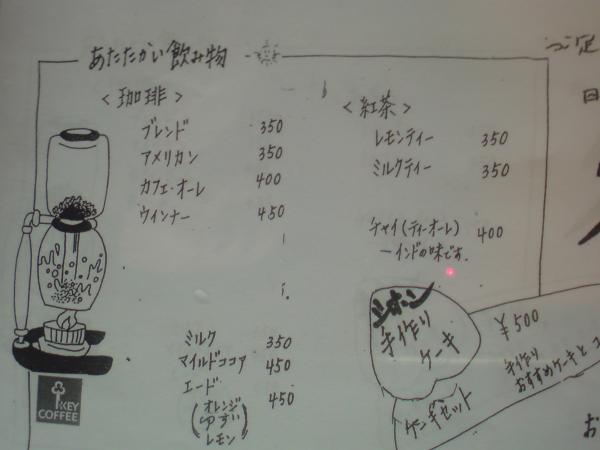 あたたかい飲み物
<珈琲>
ブレンド 350
アメリカン 350
カフェ・オーレ 400
ウィンナー 450
ミルク 350
マイルドココア 450
エード 450
(オレンジ
ゆず
レモン)
KEY
COFFEE
<紅茶>
レモンティー 350
ミルクティー 350
チャイ(ティーオーレ) 400
ーインドの味です.
シホン
手作り
ケーキ
ケーキセット
¥500
手作り
おすすめケーキと
ご定
日
お